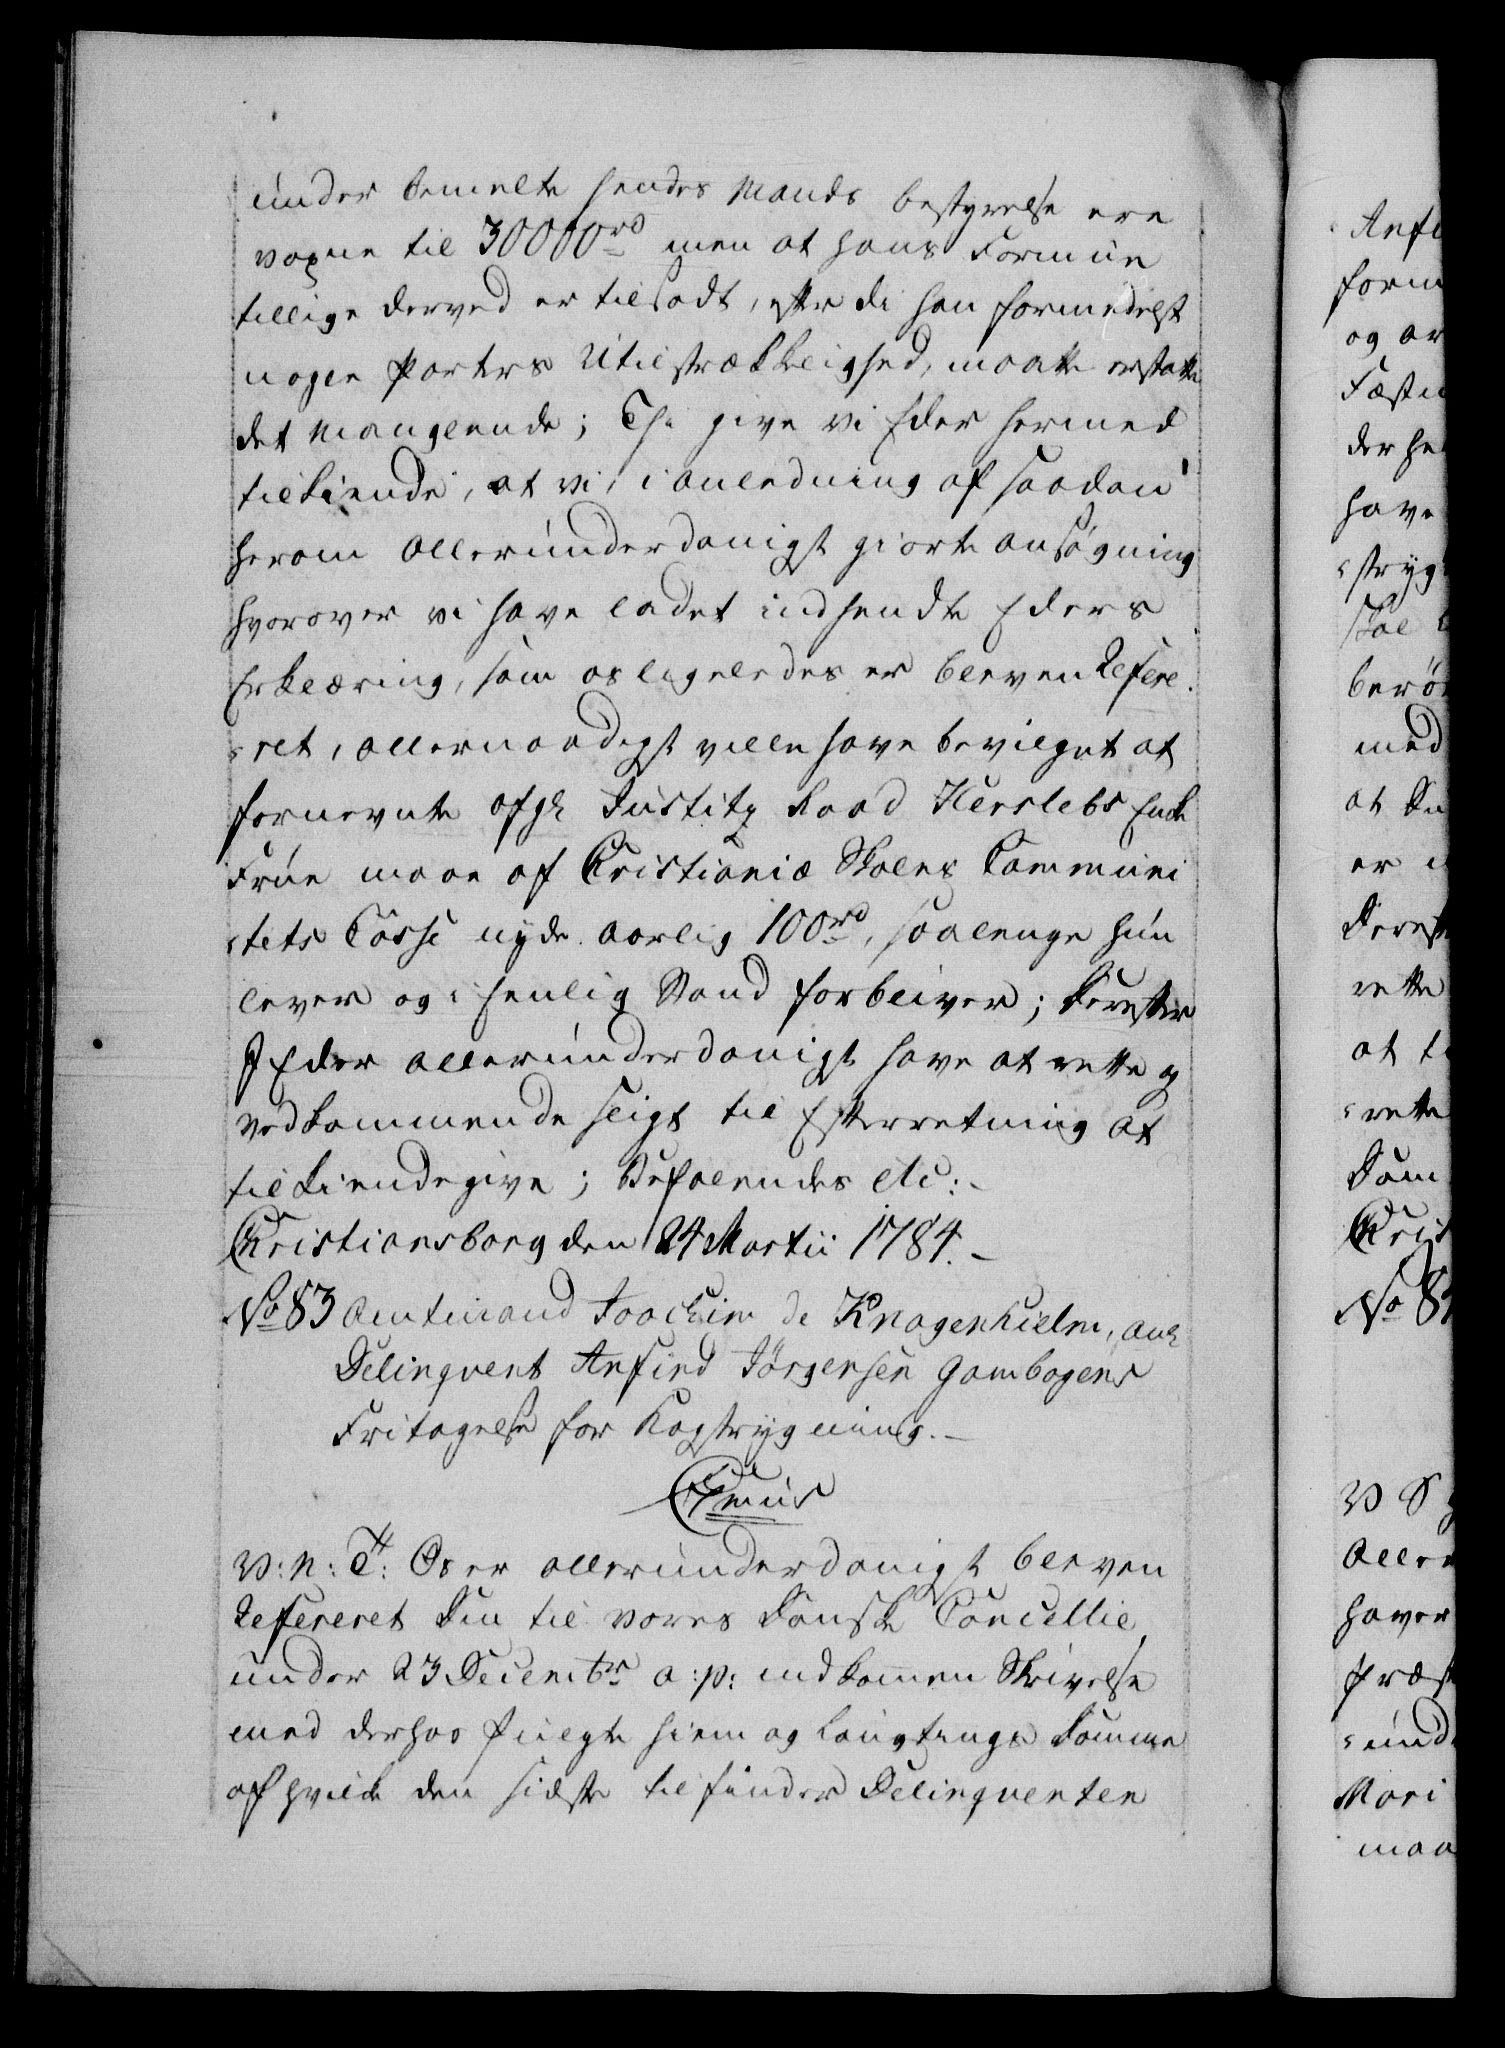 under bemelte hendes Mands bestyrelse ere
voxne til 30000rd men at hans Formue
tillige derved er tilsadt, efterdi han formedelst
nogle Parters Utilstrækkelighed, maatte erstatte
det manglende; Thi give vi Eder hermed
tilkiende, at vi, i anledning af saadan
herom allerunderdanigst giorte ansøgning
hvorover vi have ladet indhendte Eders
Erklæring, som os ligeledes er bleven Refere-
-ret, allernaadigst ville have bevilget at
fornevnte afgl Justitz Raad Herslebs Enke
Frue maae af Christianiæ Skoles Communi
-tets Casse nyde aarlig 100rd, saalenge hun
lever og i Enlig Stand forbliver; Derefter
I Eder allerunderdanigst have at rette og
vedkommende sligt til Efterretning at
tilkiendegive; Befalendes etc:-
Christiansborg den 24 Martii 1784.-
No 83 Amtmand Joachim de Knagenhielm, anl
Delinqvent Anfind Jørgensen Gambogens
Fritagelse for Kagstrygning.-
C 7mus
V: N: T: Os er allerunderdanigst bleven
Refereret Din til vores Danske Cancellie
under 23 Decembr a: p: indkommen Skrivelse
med derhos fulgte hiem og Laugtings Domme
af hvilke den sidste tilfinder Delinqventen
Anfi
form
og ar
Fæstn
der he
have
-stryg
skal
berø
med
at Du
er
Dereft
rette
at t
-rette
Dom
Chris
No 84
V S
Aller
haver
Præst
-und
Mari
maa